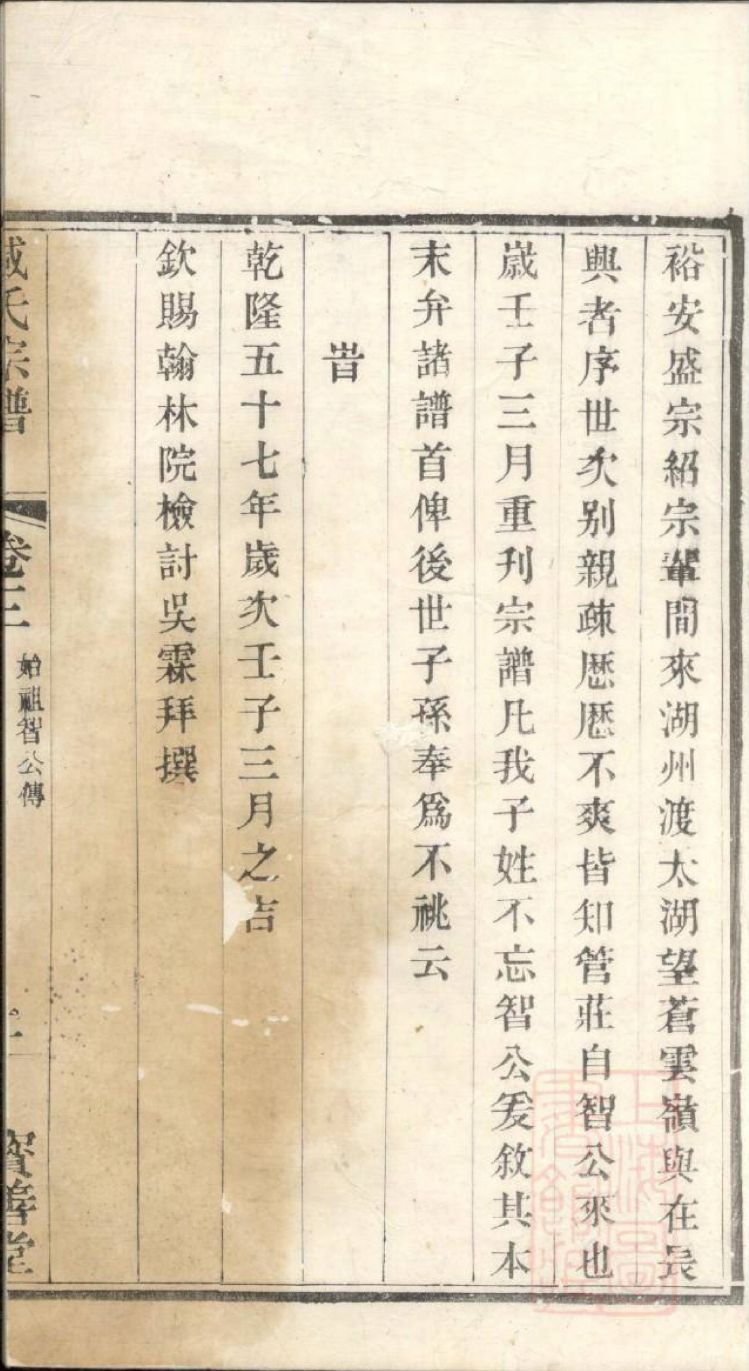 裕安盛宗紹宗輩間來湖州渡太湖望蒼雲嶺與在㝡
興者序世次別親疎歷歷不爽皆知管莊自智公來也
嵗壬子三月重刊宗譜凡我子姓不忘智公爰敘其本
末弁諸譜首俾後世子孫奉爲不祧云
旹
乾隆五十七年歲次壬子三月之吉
欽賜翰林院檢討吳霖拜撰
氏宗譜
卷三
始祖智公傳
寶善堂
上海圖書館藏